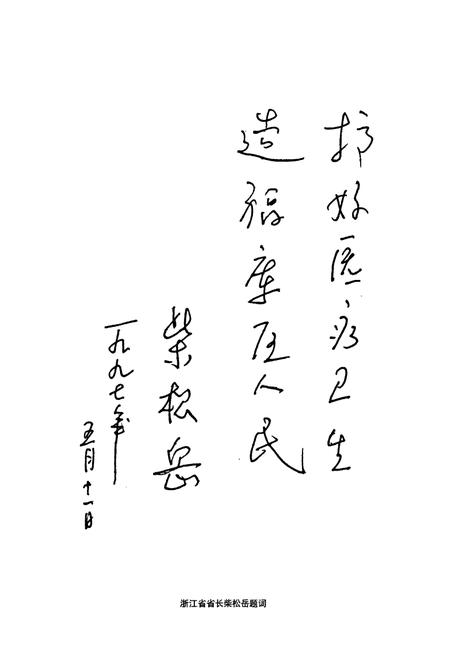 搞好医疗卫生
造福库区人民
柴松岳
一九九七年
五月十一日
浙江省省长柴松岳题词